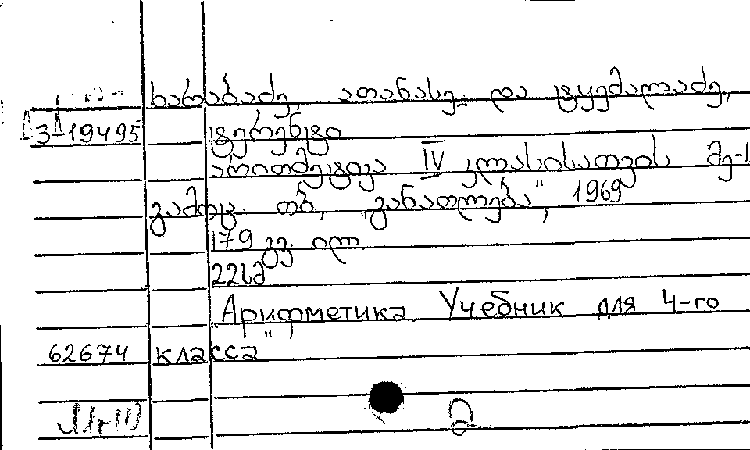 ხარაბაძე, ათანასე და ტყემალაძე,
3-19495 ტერენტი
არითმეტიკა IV კლასისათვის მე-1
გამოც. თბ., „განათლება", 1969
179 გვ. ილ.
22სმ
„Арифметика Учебник для 4-го
62674 класса"